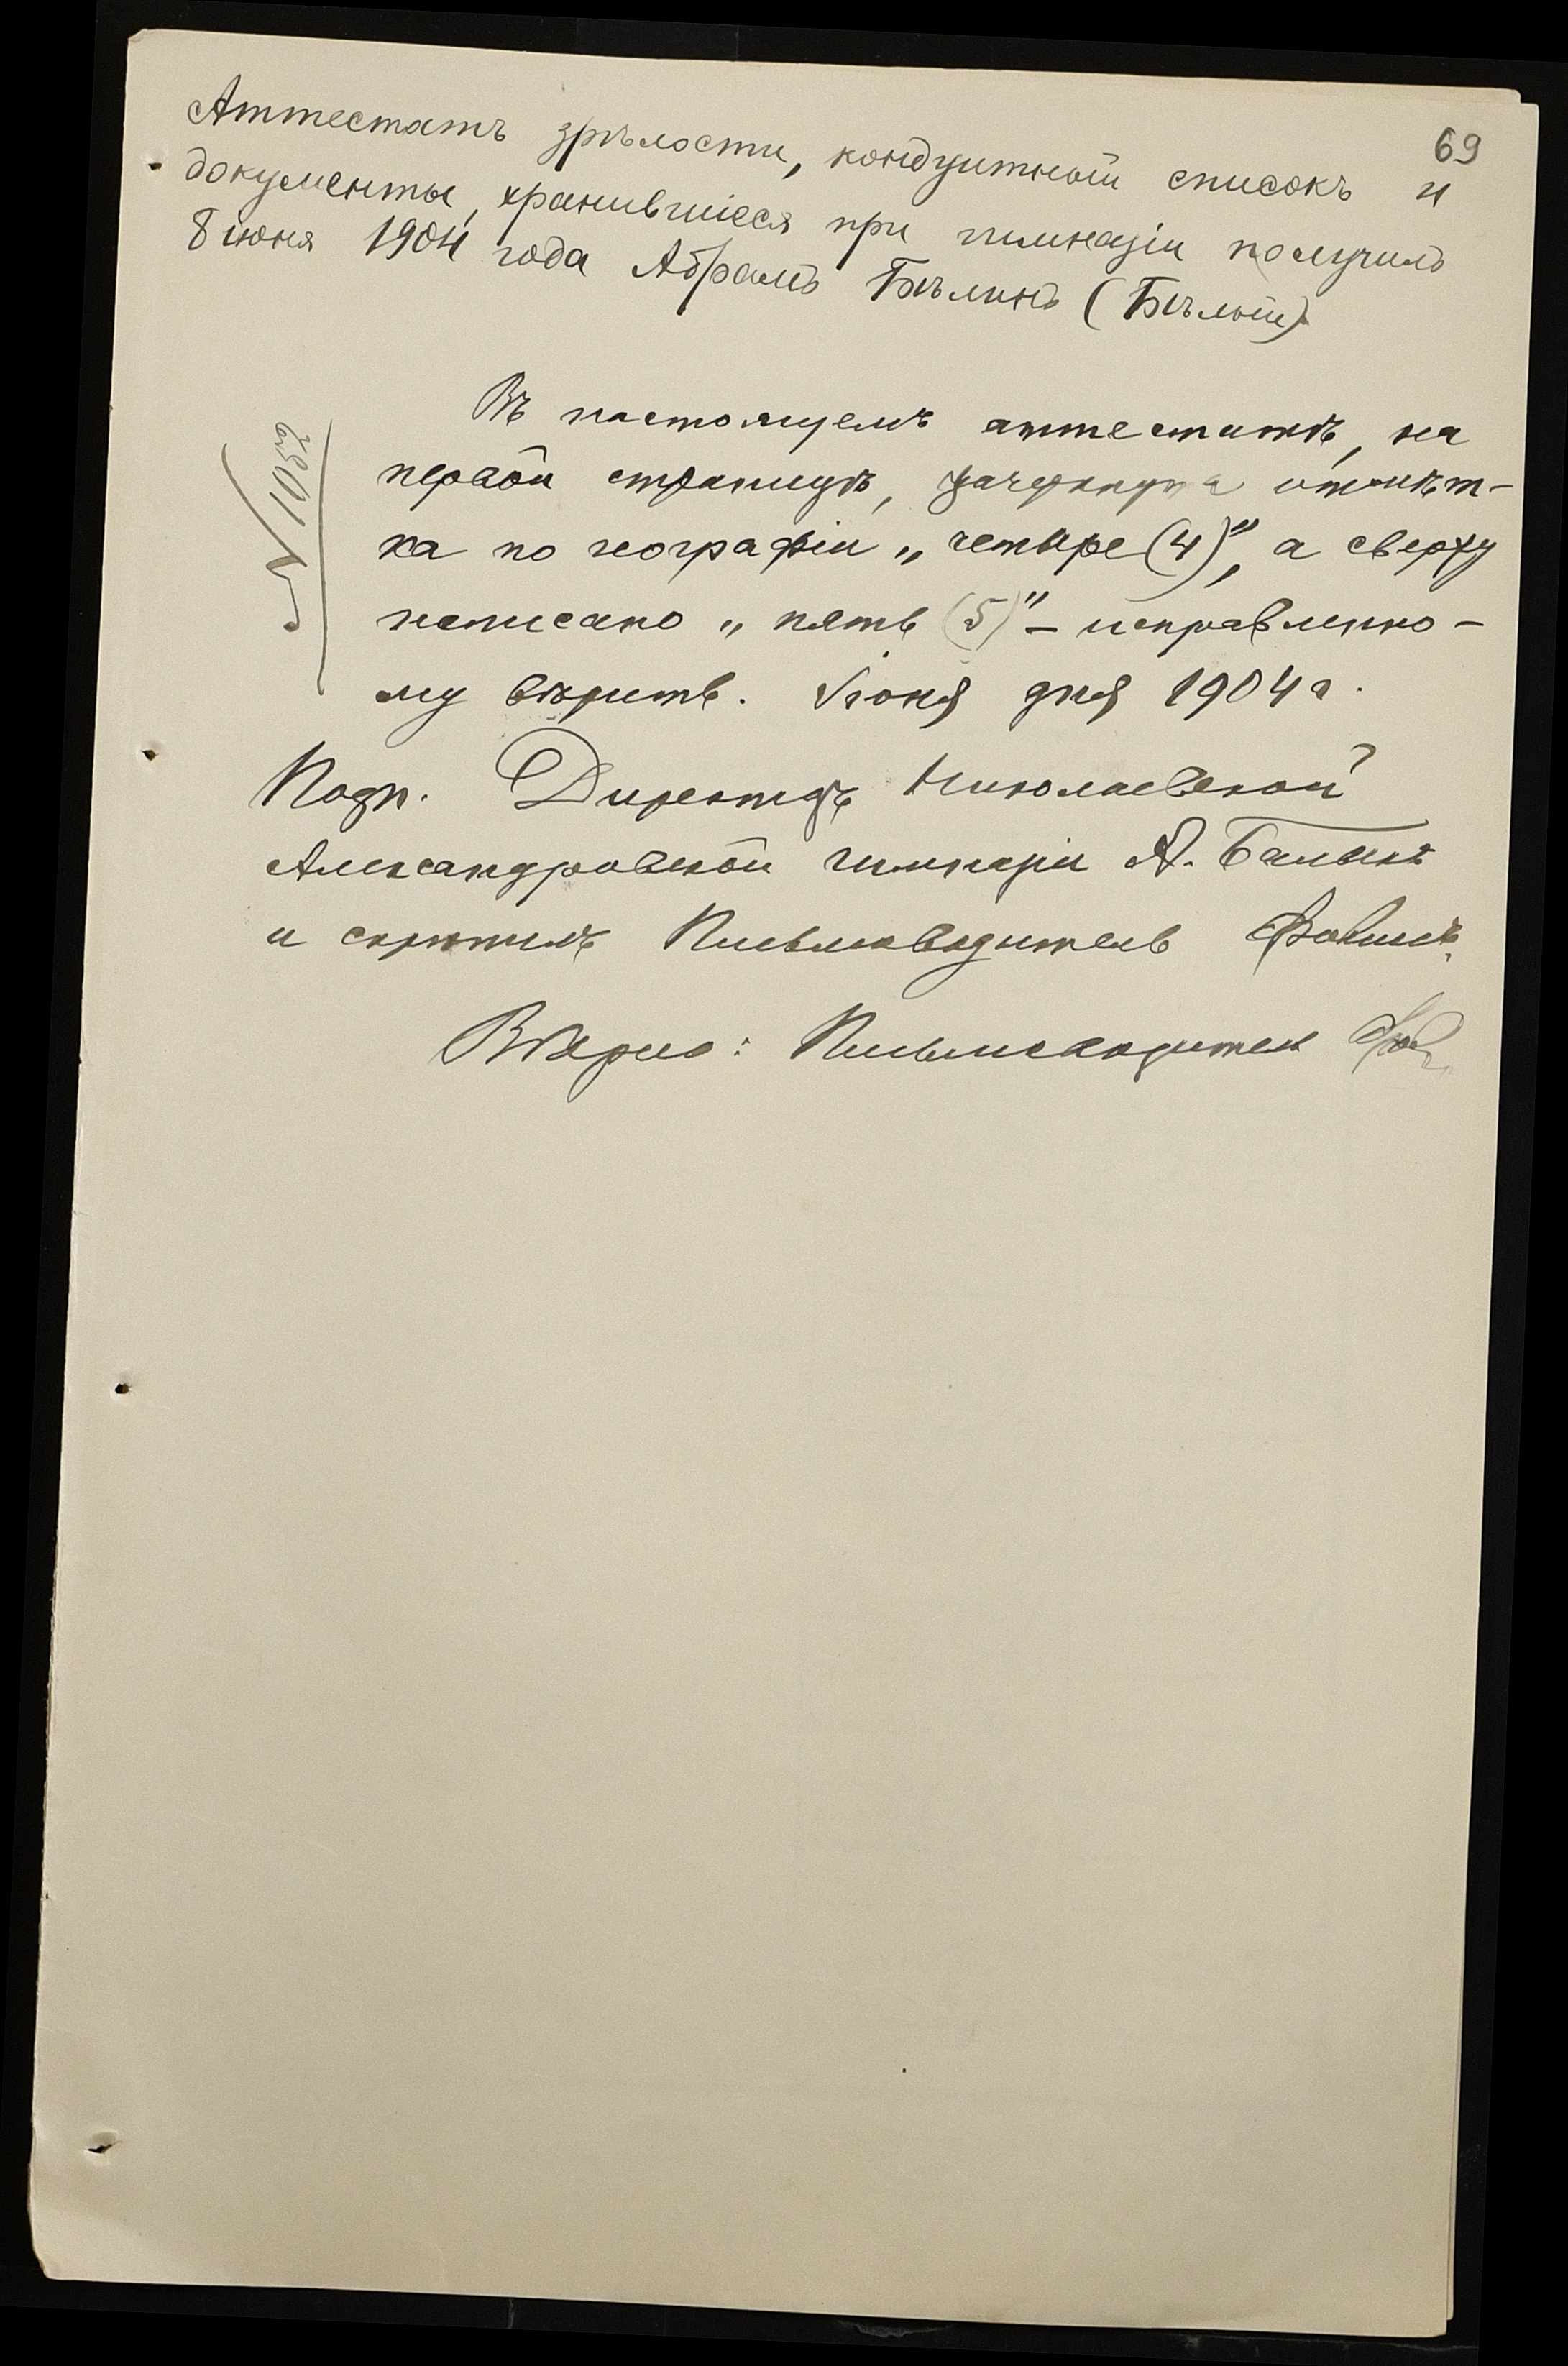 69
Аттестатъ зрѣлости, кондуитный списокъ и
документы, хранившіеся при гимназіи получилъ
8 іюня 1904 года Абрамъ Бѣлинъ (Бѣлый)
№ 1052
Въ настоящемъ аттестатѣ, на
первой страницѣ, зачеркнута отмѣт-
ка по географіи „четыре (4)", а сверху
написано „пять (5)" – исправленно-
му вѣрить. Іюня дня 1904 г.
Подп. Директоръ Николаевской
Александровской гимназіи А. Балыкъ
и скрѣпилъ Письмоводитель
Вѣрно: Письмоводитель